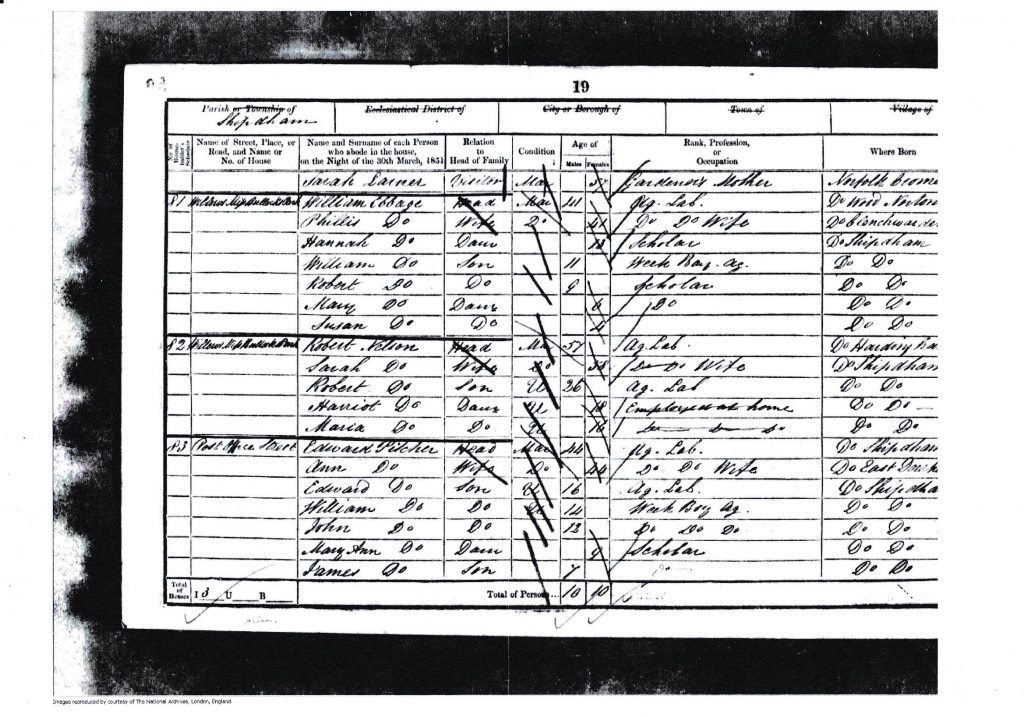 19
Parish or Township of
Shipdham
Ecclesiastical District of
City or Borough of
Town of
Village of
No. of House-holder's Schedule
Name of Street, Place, or Road, and Name or No. of House
Name and Surname of each Person who abode in the house, on the Night of the 30th March, 1851
Relation to Head of Family
Condition
Age of
Males Females
Rank, Profession, or Occupation
Where Born
Sarah Larner Visitor Mar Gardener's Mother Norfolk
81 William Ebbage Head Mar 41 Ag. Lab. Do Wood Norton
Phillis Do Wife Do 41 Do Do Wife Do
Hannah Do Daur Scholar Do Shipdham
William Do Son 11 Do Do
Robert Do Do 9 Scholar Do Do
Mary Do Daur 6 Do Do Do
Susan Do Do 4 Do Do
82 Robert Nelson Head Mar 57 Ag. Lab. Do
Sarah Do Wife Do Do Do Wife Do Shipdham
Robert Do Son U 26 Ag. Lab Do Do
Harriot Do Daur U 18 Employed at home Do Do
Maria Do Do U 16 Do Do
83 Post Office Street Edward Pitcher Head Mar 44 Ag. Lab. Do Shipdham
Ann Do Wife Do 44 Do Do Wife Do East
Edward Do Son U 16 Ag. Lab. Do Shipdha
William Do Do U 14 Do Do
John Do Do 13 Do Do Do Do Do
Mary Ann Do Daur 9 Scholar Do Do
James Do Son 7 Do Do
Total of Houses I 3 U B Total of Persons... 10 10
Images reproduced by courtesy of The National Archives, London, England.